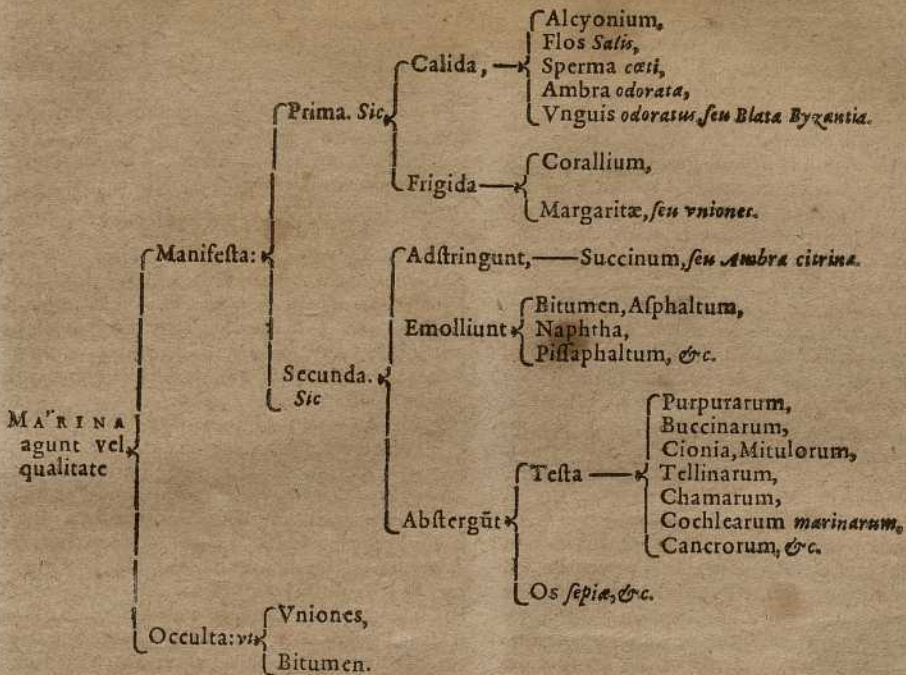 MARINA
agunt vel
qualitate
Manifeſta:
Prima. Sic
Calida,
Alcyonium,
Flos Salis,
Sperma cœti,
Ambra odorata,
Vnguis odoratus, ſeu Blata Byzantia.
Frigida
Corallium,
Margaritæ, ſeu vniones.
Secunda.
Sic
Adſtringunt,
Succinum, ſeu Ambra citrina.
Emolliunt
Bitumen, Aſphaltum,
Naphtha,
Piſſaphaltum, &c.
Abſtergūt
Teſta
Purpurarum,
Buccinarum,
Cionia, Mitulorum,
Tellinarum,
Chamarum,
Cochlearum marinarum,
Cancrorum, &c.
Os ſepiæ, &c.
Occulta: vt
Vniones,
Bitumen.